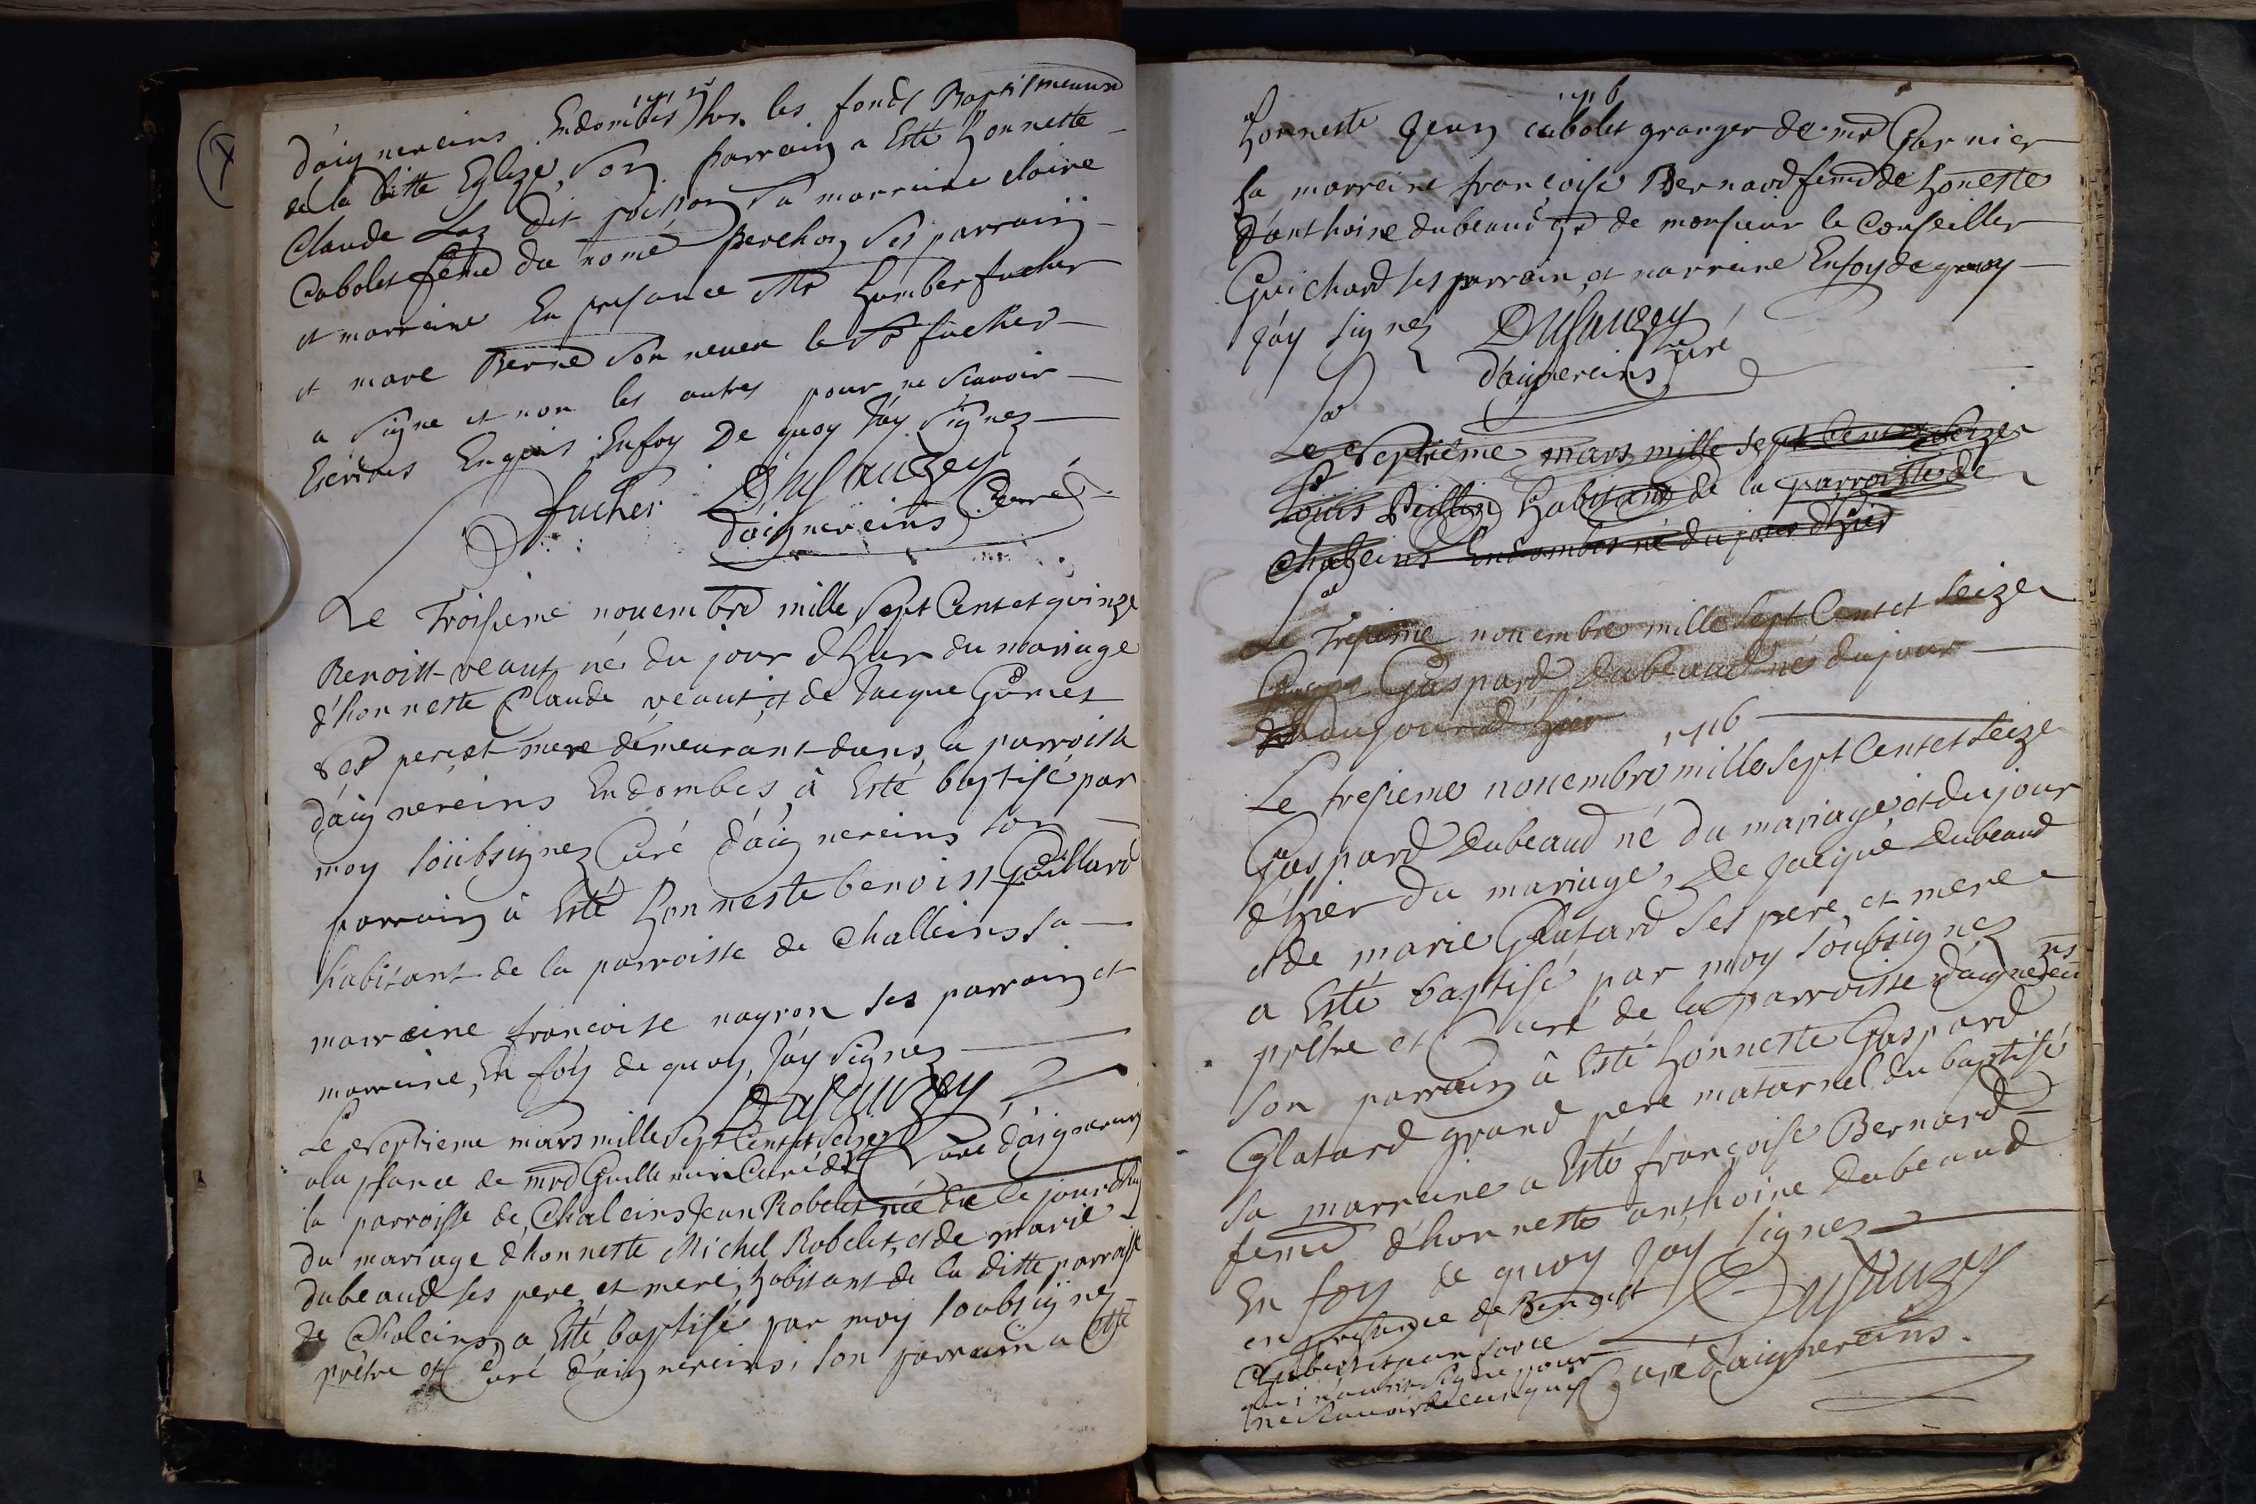 1715
d'aignereins Endombes, sur les fonds Baptismeaux
de la ditte Eglize, son parrain a Esté honneste
Claude Laz dit poisson sa marreine claire
Cabolet feme du nomé perchon ses parrain
et marreine En presance Mr humber fucher
et marc Berne son neveu le Sr fucher
a signe et non les autres pour ne scavoir
Escrire Enquis, Enfoy De quoy J'ay Signez
fucher Dusauzey
d'aignereins Curé
Le Troisieme nouembre mille Sept Cent et quinze
Benoist veaut né du jour d'hier du mariage
d'honneste Claude veaut, et de Jacque Gumet
ses pere et mere demeurant dans la parroisse
d'aignereins Endombes, à Esté baptisé par
moy soubsignez Curé d'aignereins son
parrain à Esté honneste benoist Guillard
habitant de la parroisse de Challeins sa
marreine francoise nayron ses parrain et
marreine, En foy de quoy, J'ay signez
Dusauzey
Curé d'aignereins
Le Septieme mars mille Sept Cent et Seize
a la psance de mre Guillermin Curé de
la parroisse de Chaleins Jean Robelet né du jour d'huy
du mariage d'honneste Michel Robelet, et de marie
dubeaud ses pere et mere, habitant de la ditte parroisse
de Chaleins, a Esté baptisé par moy soubsignez
prêtre et Curé d'aignereins, son parrain a Esté
1716
honneste Jean cabolet granger de mr Garnier
sa marreine françoise Bernard feme de honeste
d'anthoine dubeaud gr de monsieur le Conseiller
Guichard ses parrain, et marreine Enfoy de quoy
J'ay signez Dusauzey
Curé
d'aignereins
Le Septieme mars mille sept Cent et Seize
Louis Habitant de la parroisse de
Chaleins Endombes né du jour d'hier
Le Tresieme nouembre mille Sept Cent et Seize
Gaspard dubeaud né du jour
d'aujourd'hier
1716
Le tresieme nouembre mille Sept Cent et Seize
Gaspard dubeaud né du mariage, et du jour
d'hier du mariage, de Jacque dubeaud
et de marie Glatard ses pere, et mere
a Esté baptisé par moy soubsignez
prêtre et Curé de la parroisse d'aignereins
son parrain à Esté honneste Gaspard
Glatard grand pere matarnel du baptisé
sa marreine a Esté françoise Bernard
feme d'honneste anthoine dubeaud
En foy de quoy J'ay signez
en presance de Benoist
Dusauzey
qui n'a signe pour
ne scavoir de ce enquis
Curé d'aignereins.